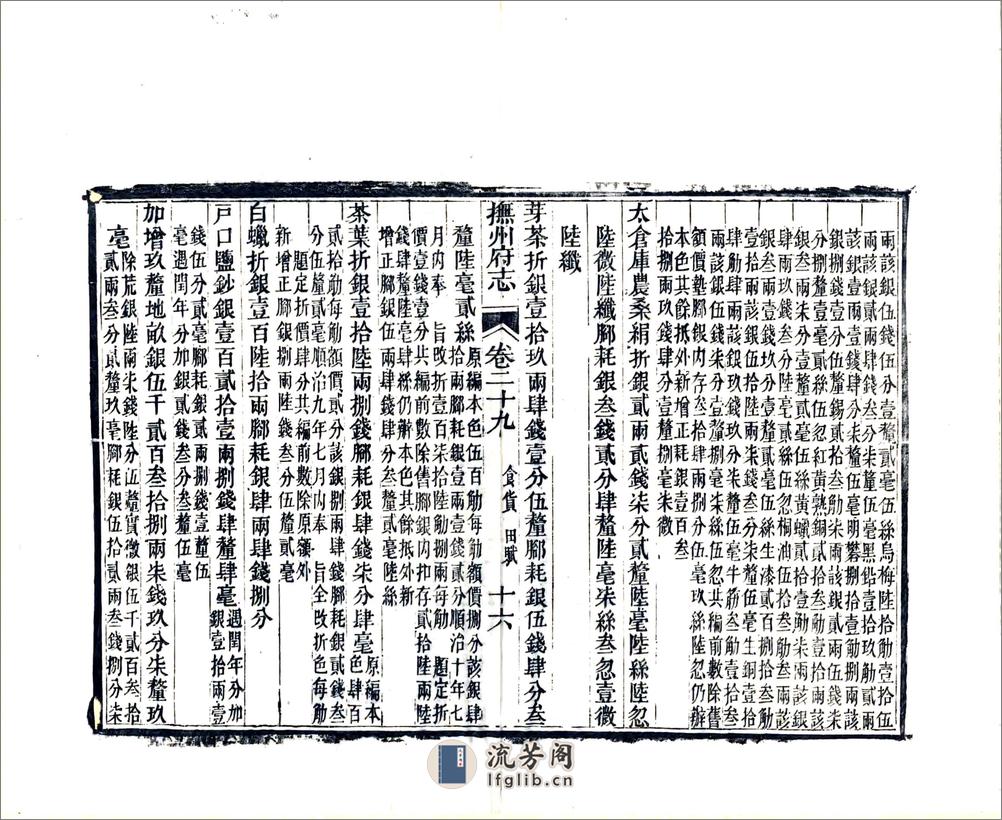 兩該銀伍錢伍分壹釐貳毫伍絲烏梅陸拾觔壹拾伍
兩該銀貳兩肆錢叁分柒釐伍毫黑鉛壹拾玖觔貳兩
該銀壹兩壹錢肆分柒釐伍毫明礬捌拾壹觔捌兩該
銀捌錢壹分伍釐錫貳拾叁觔柒兩該銀貳兩伍錢柒
分捌釐壹毫貳絲伍忽紅黃熟銅貳拾叁觔壹拾兩該
銀叁兩柒分壹釐貳毫伍絲黃蠟貳拾壹觔柒兩該銀
肆兩玖錢叁分陸毫貳絲伍忽桐油伍拾叁觔叁兩該
銀叁兩壹錢玖分壹釐貳毫伍絲生漆貳百捌拾叁觔
壹拾兩該銀貳拾兩伍錢陸分柒釐伍毫生銅壹拾
肆觔肆兩該銀玖錢玖分柒釐伍毫牛筋叁觔壹拾叁
兩該銀伍錢柒分壹釐捌毫柒絲伍忽共編前數除舊
額價墊腳銀內存叁拾肆兩捌分伍毫玖絲陸忽仍辦
本色其餘抵外新增正耗銀壹百叁
拾捌兩玖錢肆分壹釐捌微
太倉庫農桑絹折銀貳兩貳錢柒分貳釐陸毫陸絲陸忽
陸微陸纖腳耗銀叁錢貳分肆釐陸毫柒絲叁忽壹微
陸纖
芽茶折銀壹拾玖兩肆錢壹分伍釐腳耗銀伍錢肆分叁
撫州府志 卷二十九 食貨 田賦 十六
釐陸毫貳絲原編本色伍百觔每觔額價捌分該銀肆
拾兩腳耗銀壹兩壹錢貳分順治十年七
月內奉 旨改折壹百柒拾陸觔捌兩每觔 題定折
價壹錢壹分共編前數除舊腳銀內扣存貳拾陸兩
錢肆釐陸毫肆絲仍辦本色其餘抵外新
增正腳銀伍兩陸錢肆分叁釐貳毫
茶葉折銀壹拾陸兩捌錢腳耗銀肆錢柒分肆毫原編本
色肆
貳拾觔每觔額價貳分該銀捌兩肆錢腳耗銀貳錢叁
分伍釐貳毫順治九年七月內奉 旨全改折色每觔
題定折價肆分共編前數除原額外
新增正腳銀捌兩陸錢叁分伍釐貳毫
白蠟折銀壹百陸拾兩腳耗銀肆兩肆錢捌分
戶口鹽鈔銀壹百貳拾壹兩捌錢肆釐肆毫遇閏年分加
銀壹拾兩壹
錢伍分貳毫腳耗銀貳兩捌錢壹釐伍
毫遇閏年分加銀貳錢叁分叁釐伍毫
加增玖釐地畝銀伍千貳百叁拾捌兩柒錢玖分柒釐玖
毫除荒銀陸兩柒錢陸分伍釐實徵銀伍千貳百叁拾
貳兩叁分貳釐玖毫腳耗銀伍拾貳兩叁錢捌分柒
流芳阁
lfglib.cn